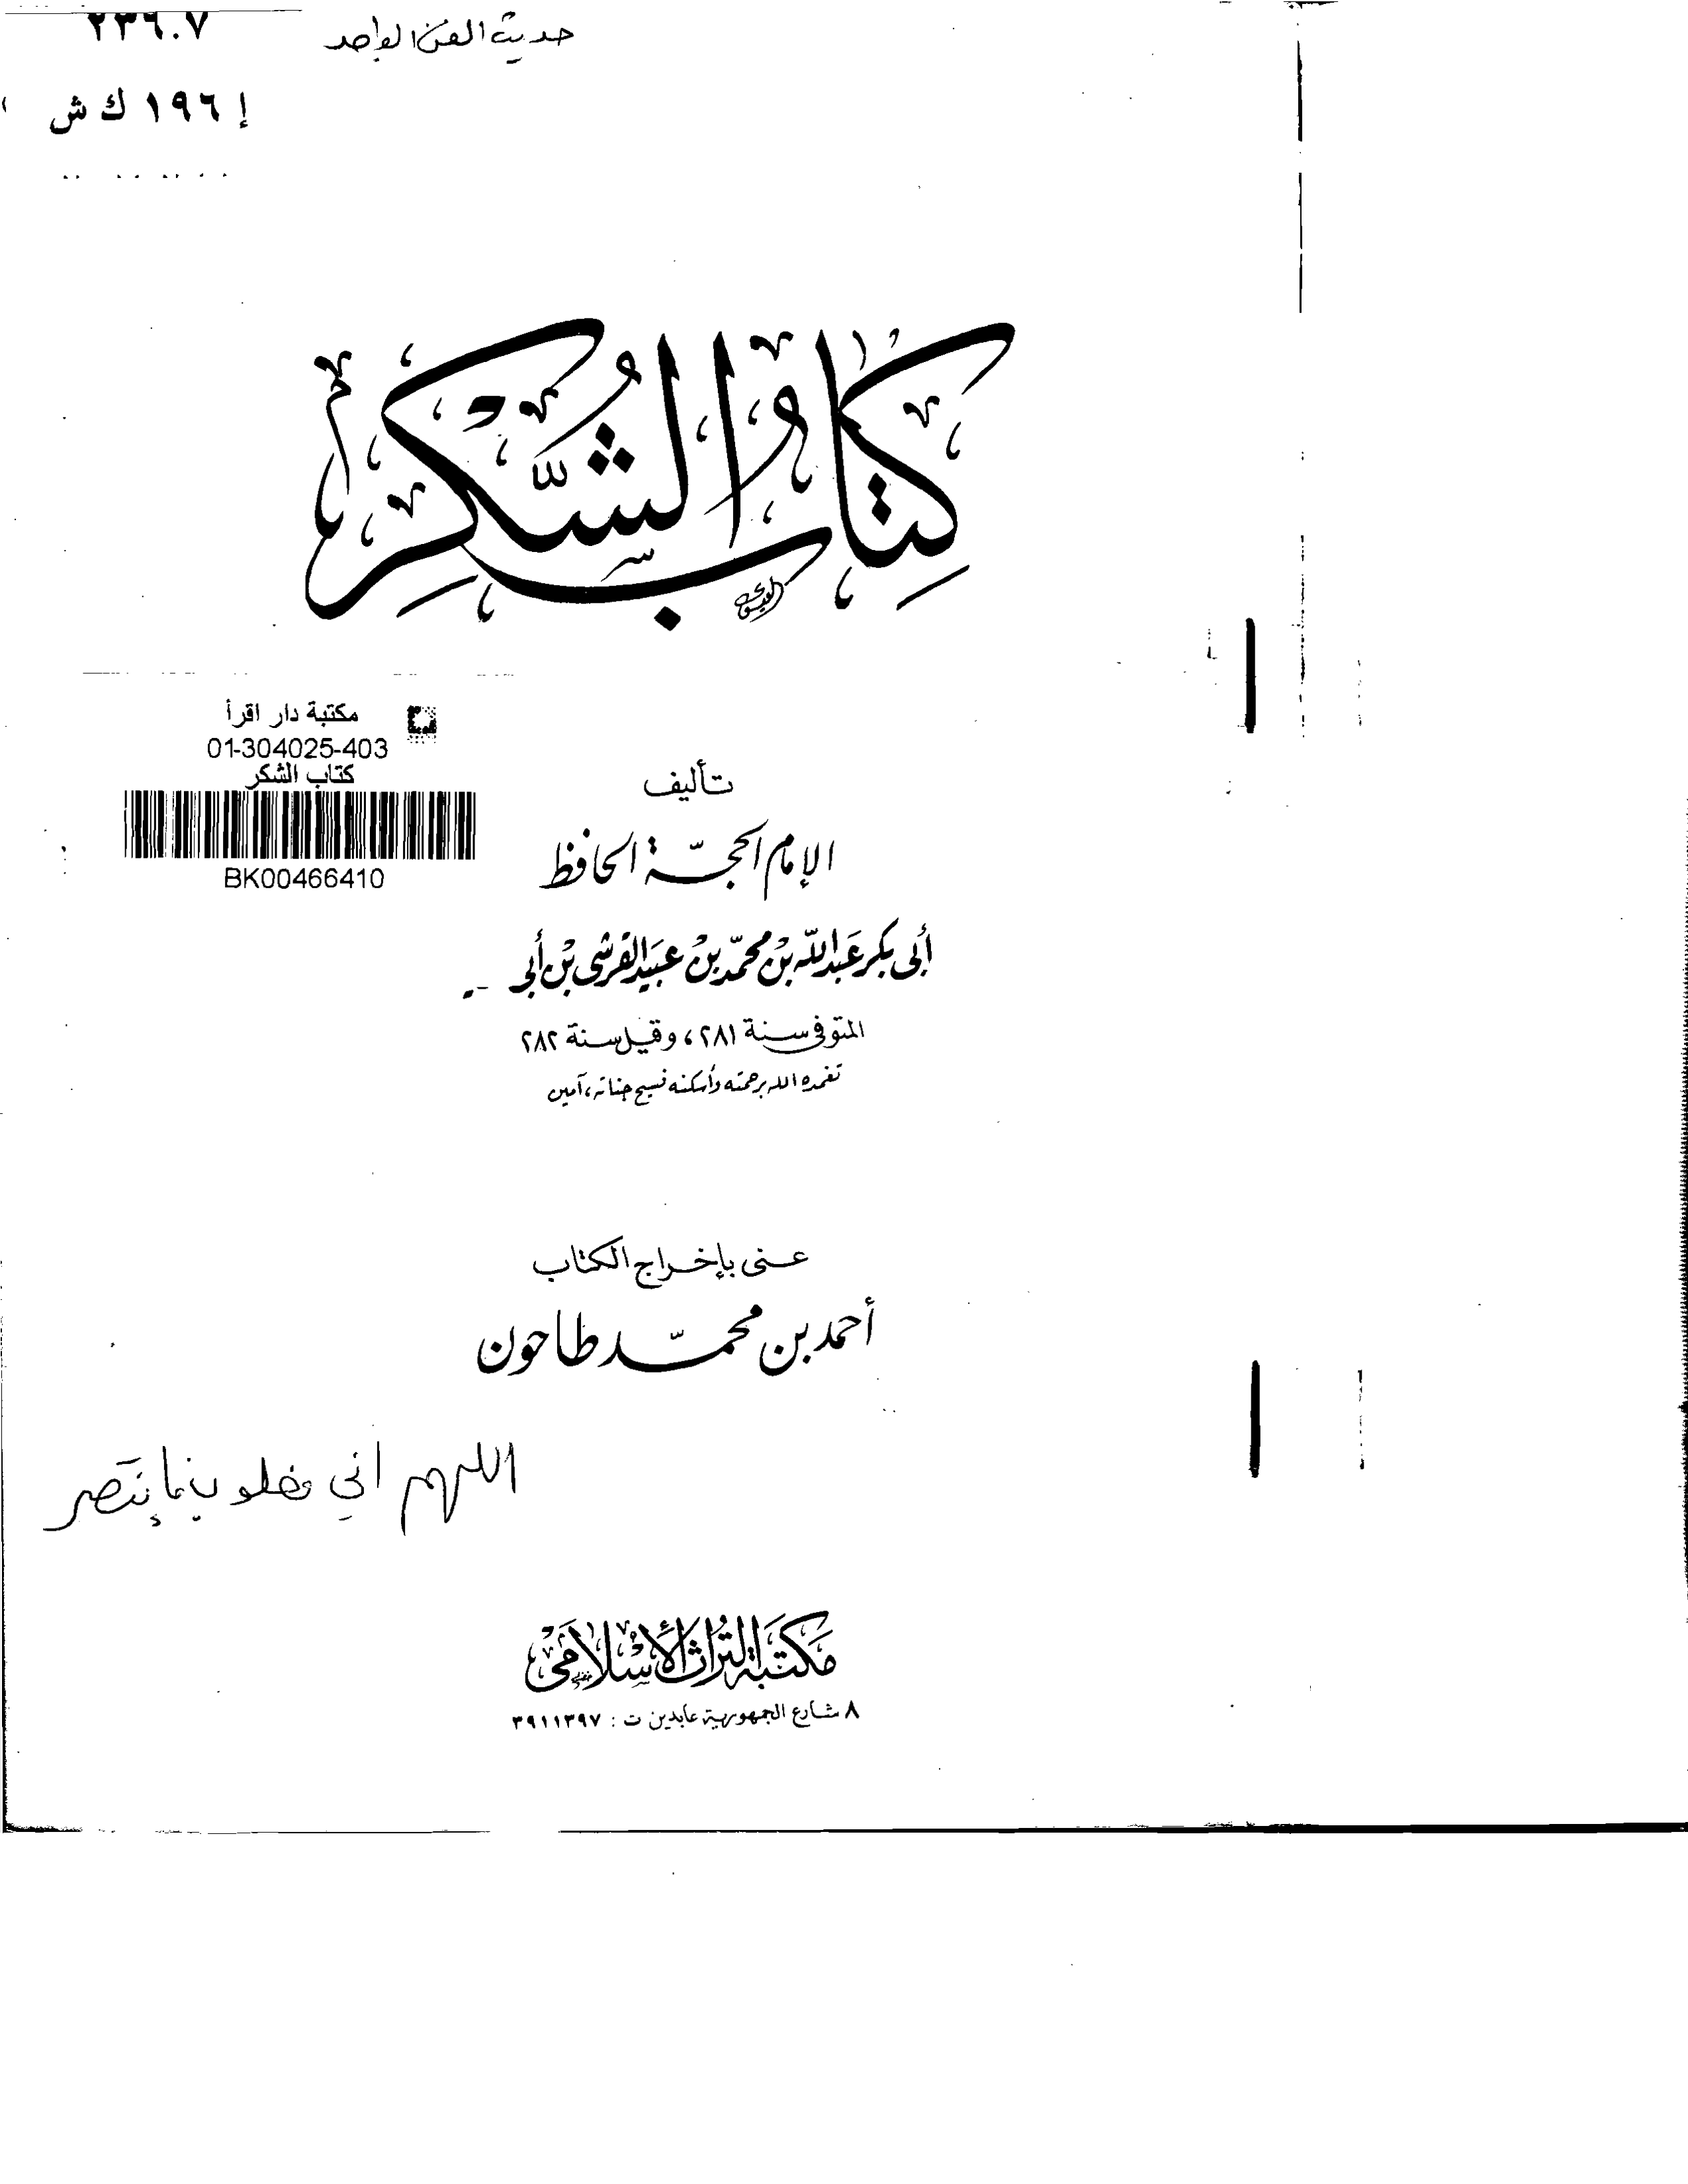 ٢٣٦.٧
حديث الفن الواحد
إ ١٩٦ ك ش
كِتَابُ الشُّكْرِ
مكتبة دار اقرأ
01-304025-403
كتاب الشكر
BK00466410
تأليف
الإمام الحجّة الحافظ
أبى بكر عَبد اللّه بنْ محمّد بنْ عبَيد القرشى بنْ أبى
المتوفى سنة ٢٨١، وقيل سنة ٢٨٢
تغمده الله برحمته وأسكنه فسيح جناته، آمين
عنى بإخراج الكتاب
أحمد بن محمّد طاحون
اللهم اني مغلوب فإنتصر
مَكتَبة التراث الإسْلامى
٨ شارع الجمهورية عابدين ت : ٣٩١١٣٩٧